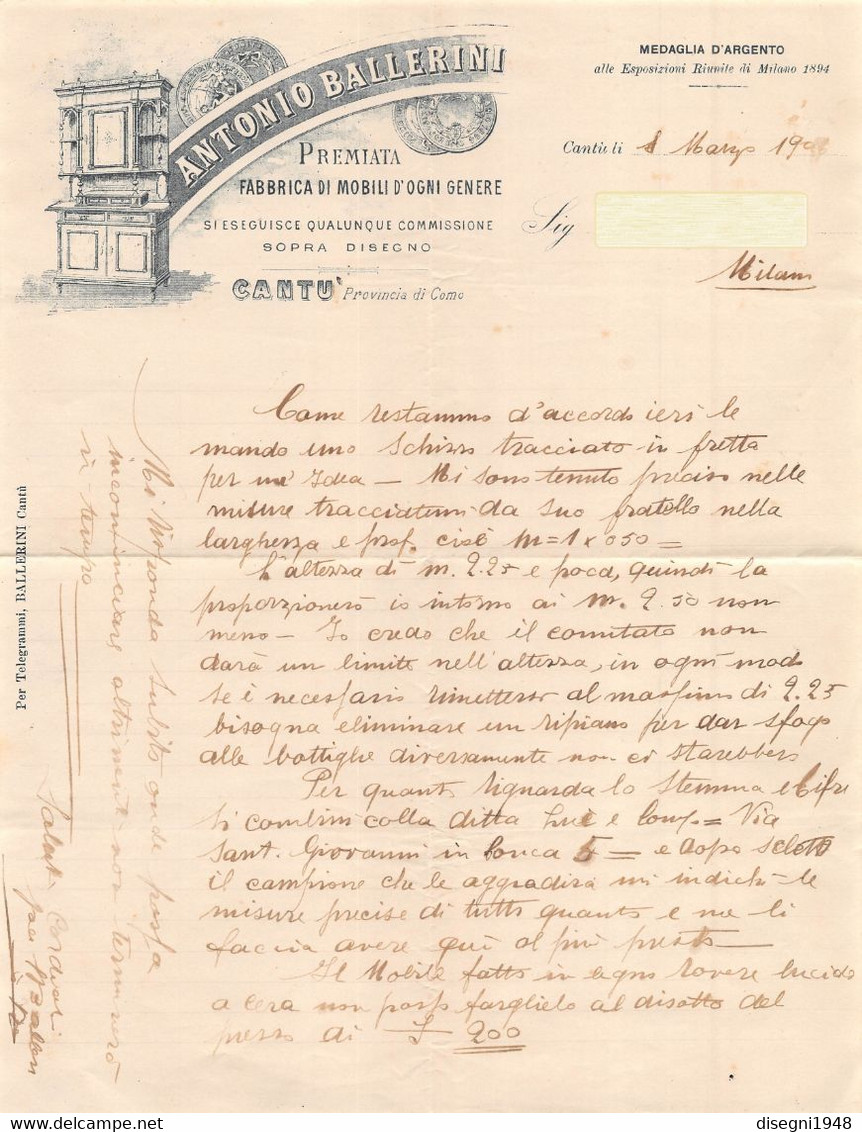 ANTONIO BALLERINI
PREMIATA
FABBRICA DI MOBILI D'OGNI GENERE
SI ESEGUISCE QUALUNQUE COMMISSIONE
SOPRA DISEGNO
CANTU' Provincia di Como
MEDAGLIA D'ARGENTO
alle Esposizioni Riunite di Milano 1894
Cantù li 8 Marzo
Sig
Milano
Come restammo d'accordo ieri le
mando uno schizzo tracciato in fretta
per un' Idea — Mi sono tenuto preciso nelle
misure tracciatemi da suo fratello nella
larghezza e prof. cioè m = 1 x 050 =
L'altezza di m. 2.25 è poca, quindi la
proporzionerò io intorno ai m. 2.50 non
meno — Io credo che il comitato non
darà un limite nell'altezza, in ogni modo
se è necessario rimettersi al massimo di 2.25
bisogna eliminare un ripiano per dar sfogo
alle bottiglie diversamente non ci starebbero
Per quanto riguarda lo Stemma e Cifre
si combini colla ditta e Comp = Via
Sant. Giovanni in Conca 5 = e dopo scelto
il campione che le aggradirà mi indichi le
misure precise di tutto quanto e me li
faccia avere qui al più presto —
Il Mobile fatto in legno rovere lucido
a cera non posso farglielo al disotto del
prezzo di £ 200
Mi risponda subito onde possa
incominciare altrimenti non terminerò
in tempo
Saluti cordiali
Per Telegrammi, BALLERINI Cantù
disegni1948